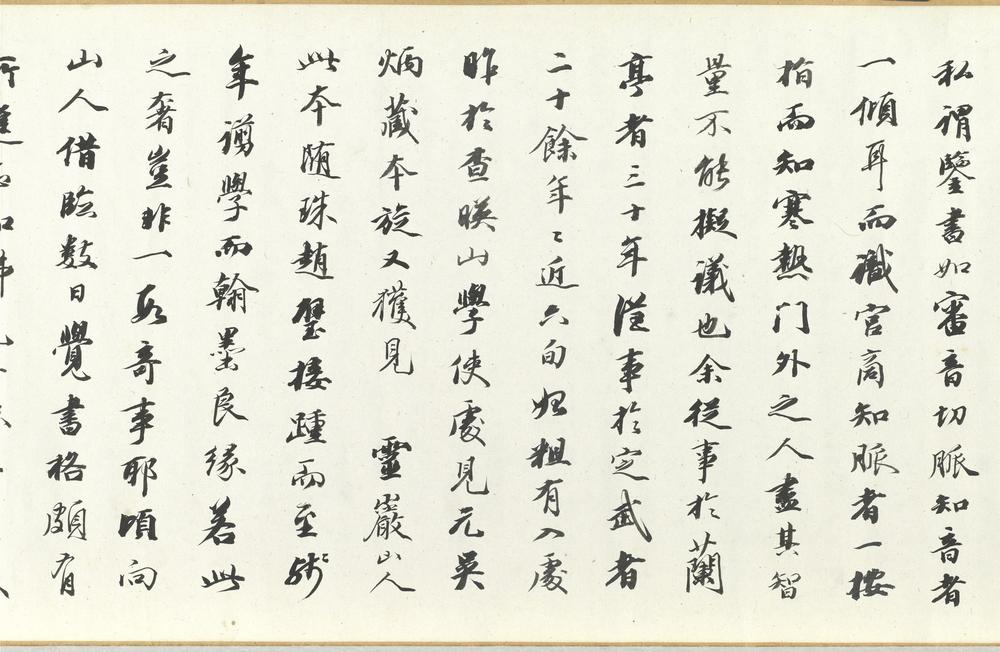 私謂鑒書如審音切脈知音者
一傾耳而識宮商知脈者一按
指而知寒熱门外之人盡其智
量不能擬議也余從事於蘭
亭者三十年從事於定武者
二十餘年〻近六旬始粗有入處
昨於查暎山學使處見元吳
炳藏本旋又獲見
靈巖山人
此本隨珠趙璧接踵而至
年謭學而翰墨良緣若此
之奢豈非一段奇事耶頃向
山人借臨數日覺書格頗有